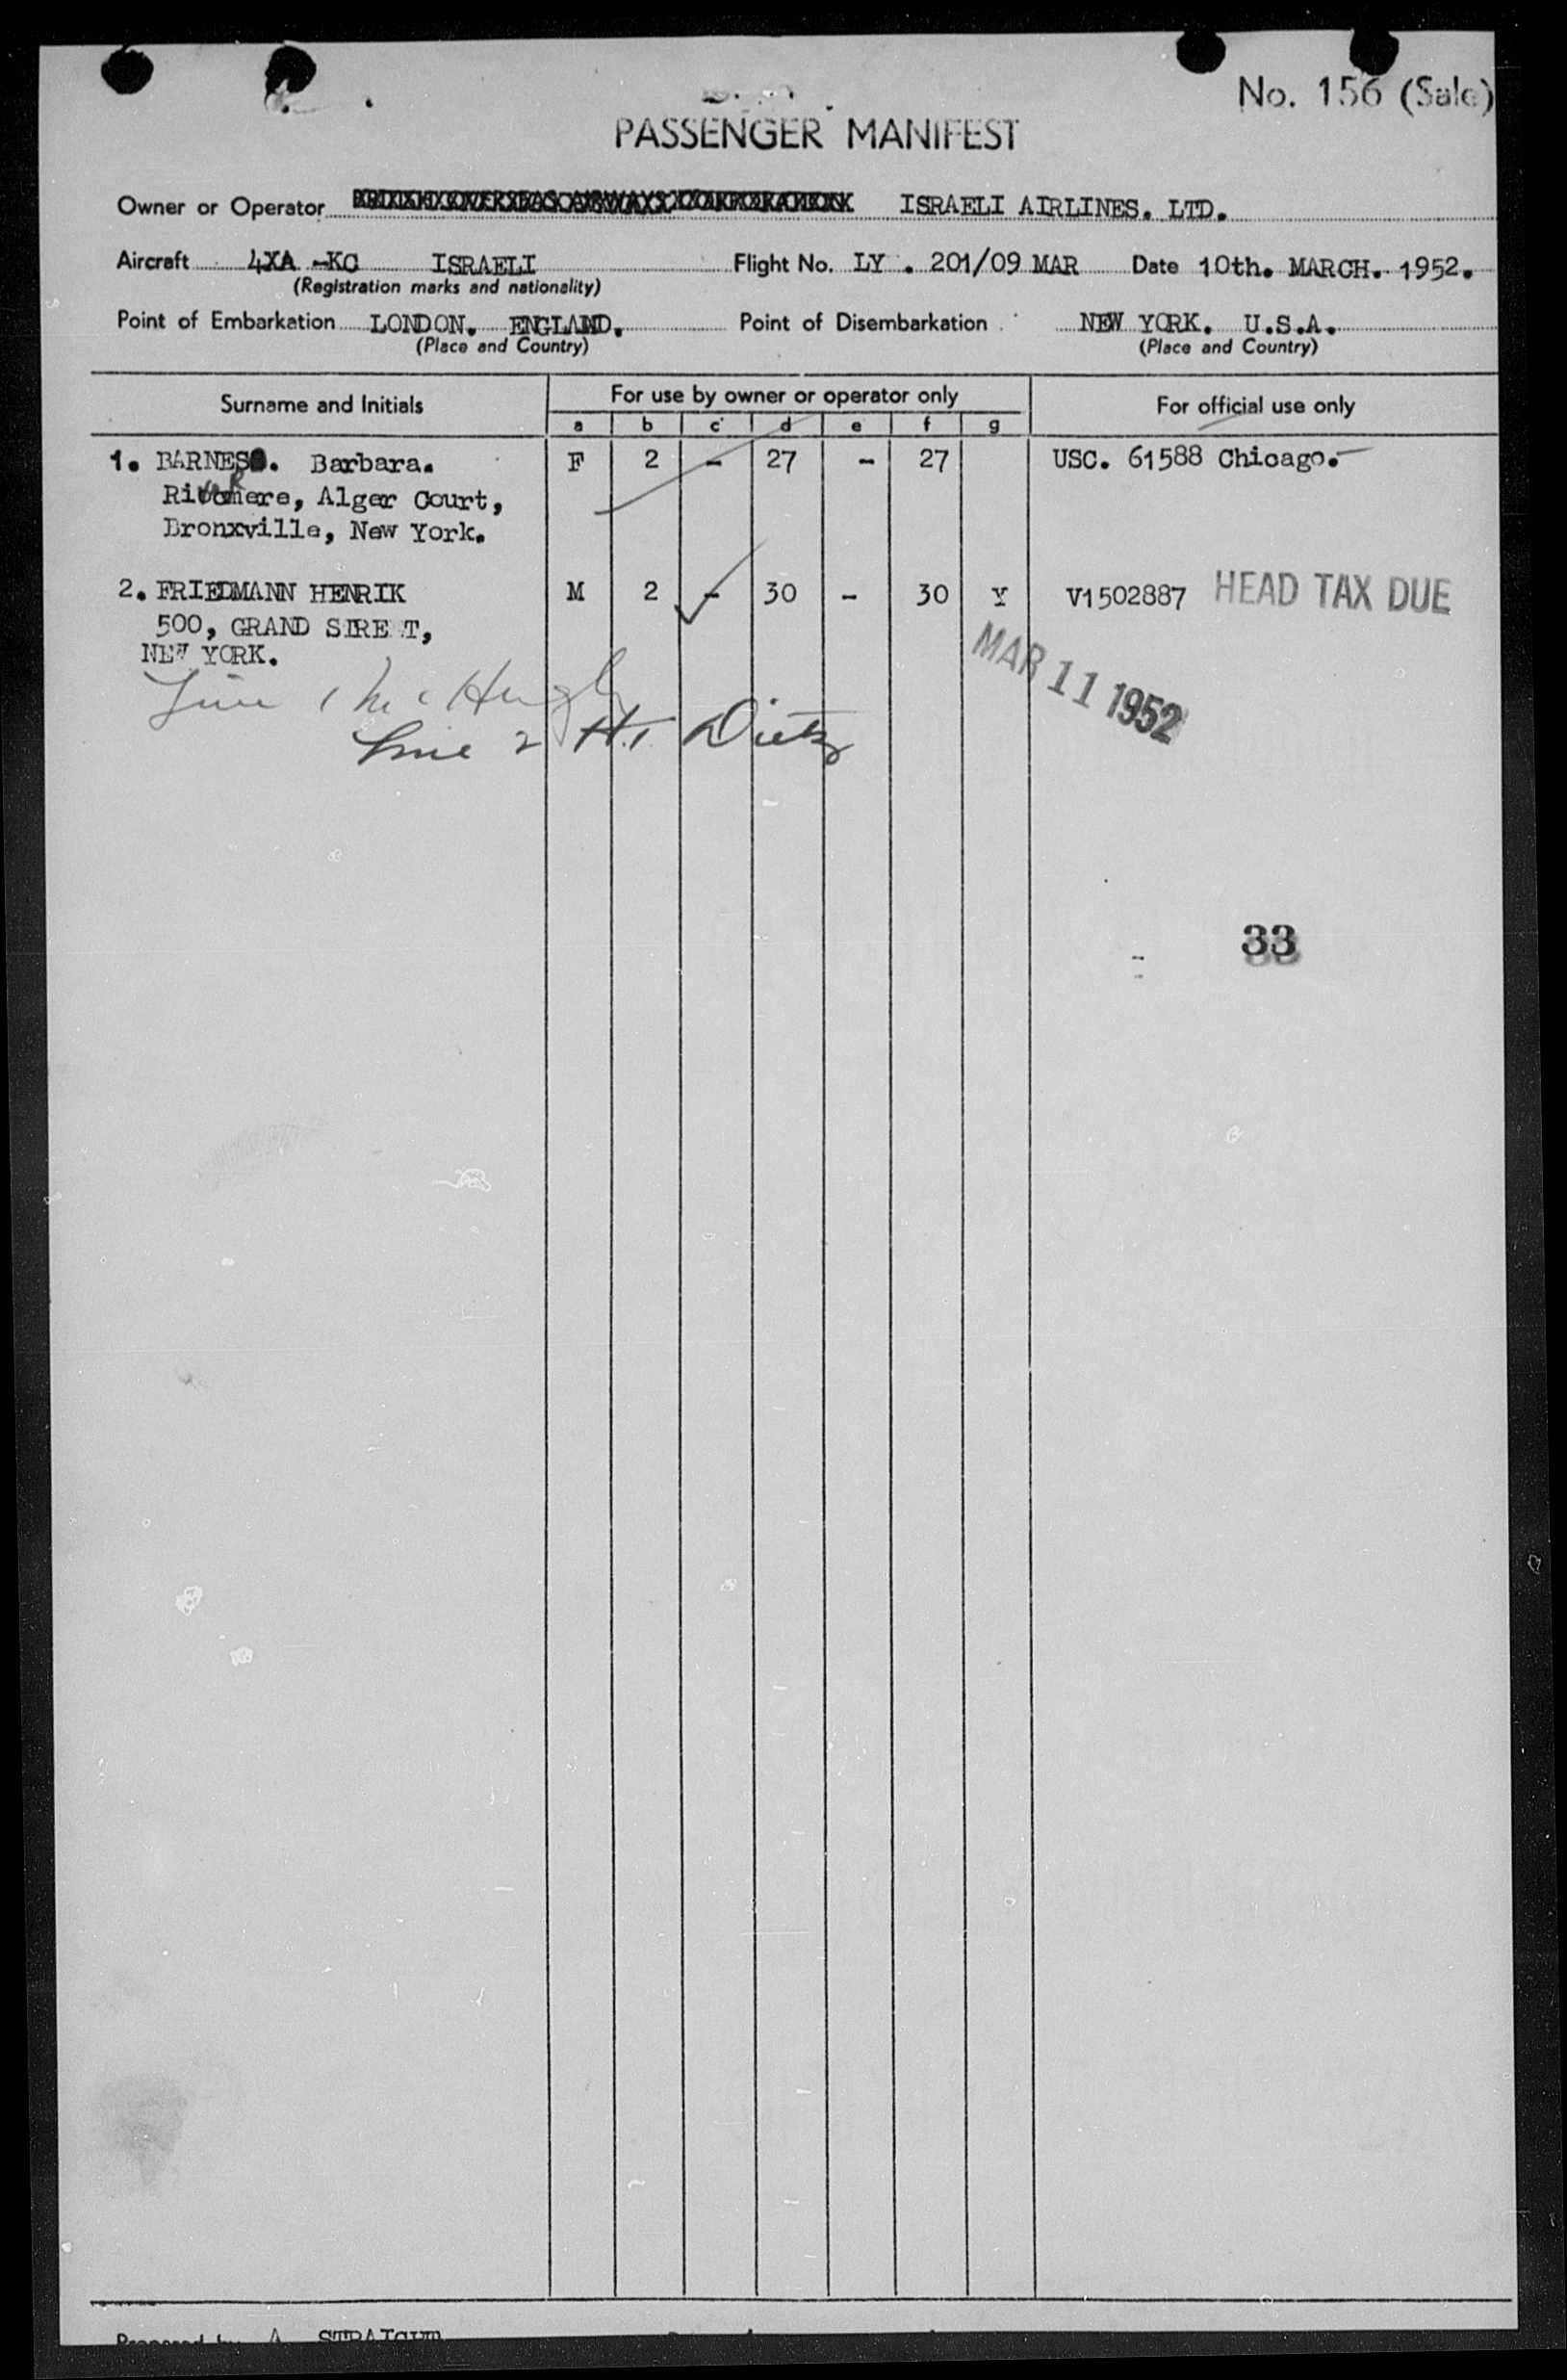 No. 156 (Sale)
PASSENGER MANIFEST
Owner or Operator ISRAELI AIRLINES. LTD.
Aircraft 4XA -KC ISRAELI Flight No. LY . 201/09 MAR Date 10th. MARCH. 1952.
(Registration marks and nationality)
Point of Embarkation LONDON. ENGLAND. Point of Disembarkation NEW YORK. U.S.A.
(Place and Country) (Place and Country)
Surname and Initials For use by owner or operator only For official use only
a b c d e f g
1. BARNES. Barbara. F 2 - 27 - 27 USC. 61588 Chicago.
Rivermere, Alger Court,
Bronxville, New York.
2. FRIEDMANN HENRIK M 2 - 30 - 30 Y V1502887 HEAD TAX DUE
500, GRAND STREET,
NEW YORK.
MAR 11 1952
Line 1 McHugh
Line 2 H. Dietz
33
Prepared by A. STRAIGHT